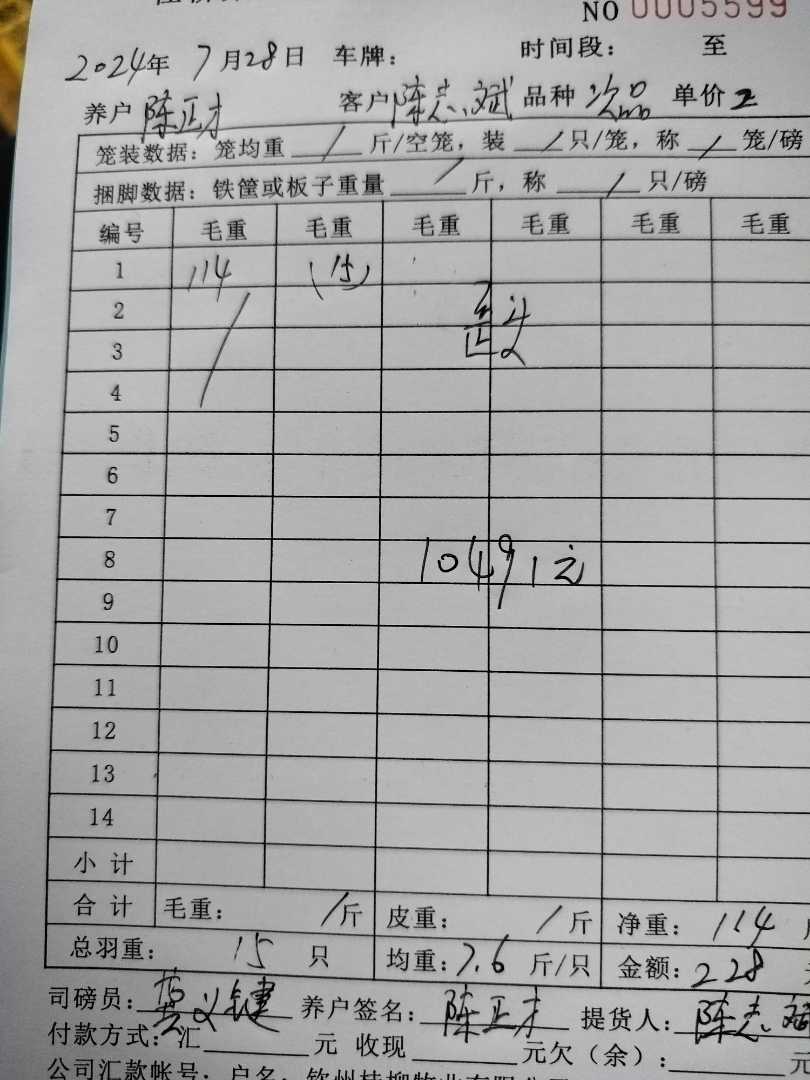 NO 0005599
2024年 7月28日 车牌： 时间段： 至
养户 陈正才 客户 陈志斌 品种 次品 单价 2
笼装数据：笼均重 / 斤/空笼，装 / 只/笼，称 / 笼/磅
捆脚数据：铁筐或板子重量 / 斤，称 / 只/磅
编号 毛重 毛重 毛重 毛重 毛重 毛重
1 114 (15)
2
3
4
5
6
7
8 10491元
9
10
11
12
13
14
小计
合计 毛重： / 斤 皮重： / 斤 净重： 114
总羽重： 15 只 均重：7.6 斤/只 金额：228
司磅员： 义键 养户签名： 陈正才 提货人： 陈志斌
付款方式：汇 元 收现 元欠（余）： 元
公司汇款帐号：户名：钦州桂柳牧业有限公司